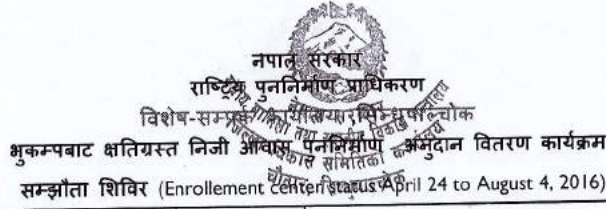 नेपाल सरकार
राष्ट्रिय पुननिर्माण प्राधिकरण
विशेष-सम्पर्क कार्यालय, सिन्धुपाल्चोक
भुकम्पबाट क्षतिग्रस्त निजी आवास पुननिर्माण अनुदान वितरण कार्यक्रम
सम्झौता शिविर (Enrollement center status April 24 to August 4, 2016)